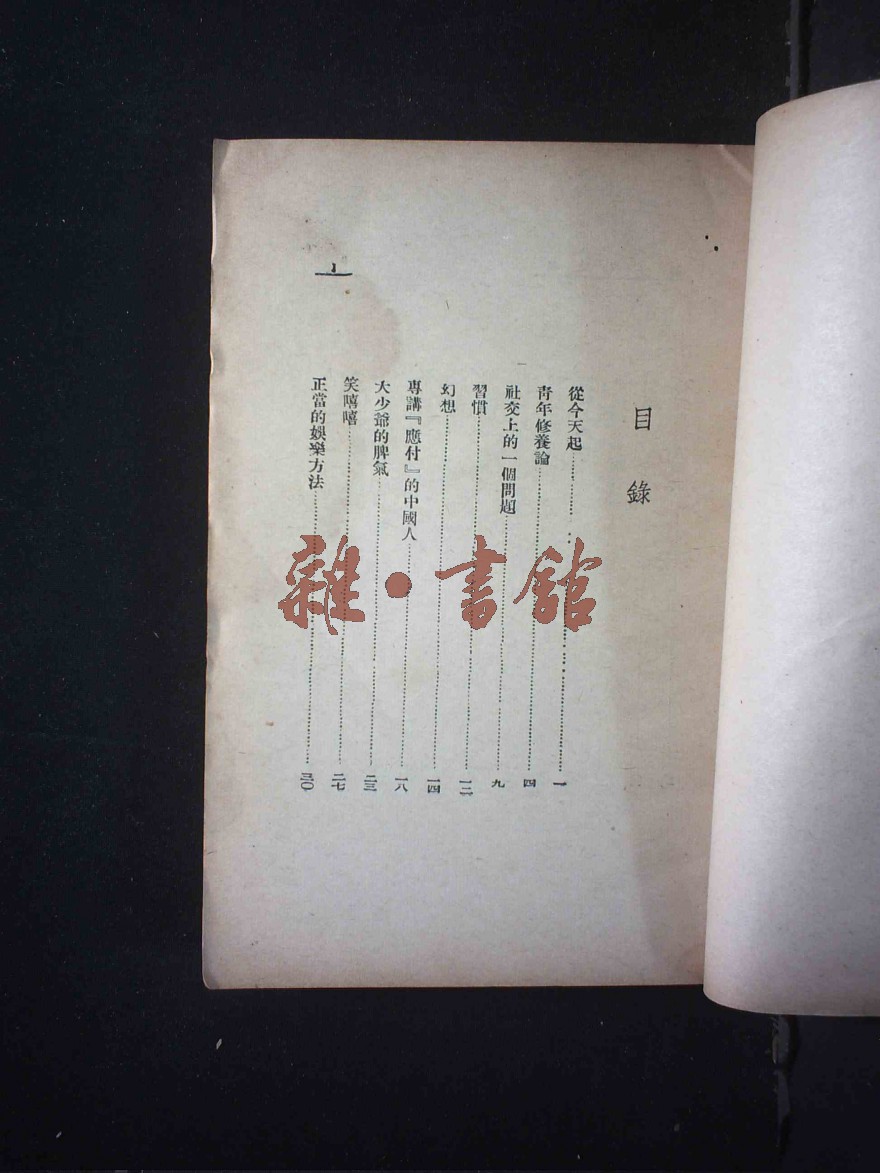 目錄
從今天起……一
青年修養論……四
社交上的一個問題……九
習慣……一二
幻想……一四
專講『應付』的中國人……一八
大少爺的脾氣……二三
笑嘻嘻……二七
正當的娛樂方法……三〇
1
雜·書館